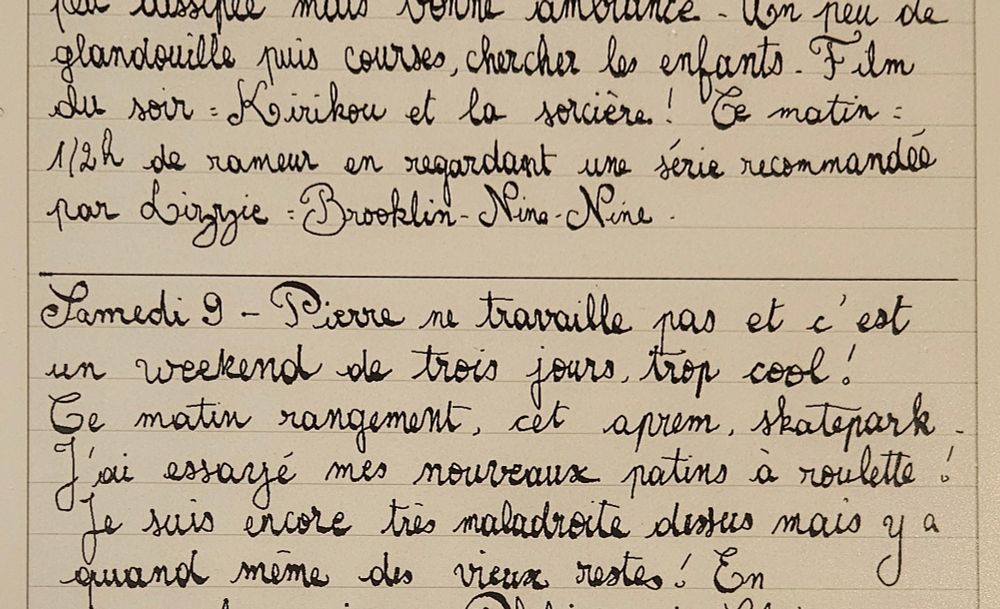 peu dissipée mais bonne ambiance - Un peu de
glandouille puis courses, chercher les enfants. Film
du soir : Kirikou et la sorcière ! Ce matin :
1/2h de rameur en regardant une série recommandée
par Lizzie : Brooklin-Nine-Nine.
Samedi 9 - Pierre ne travaille pas et c'est
un weekend de trois jours, trop cool !
Ce matin rangement, cet aprem, skatepark.
J'ai essayé mes nouveaux patins à roulette !
Je suis encore très maladroite dessus mais y a
quand même des vieux restes ! En